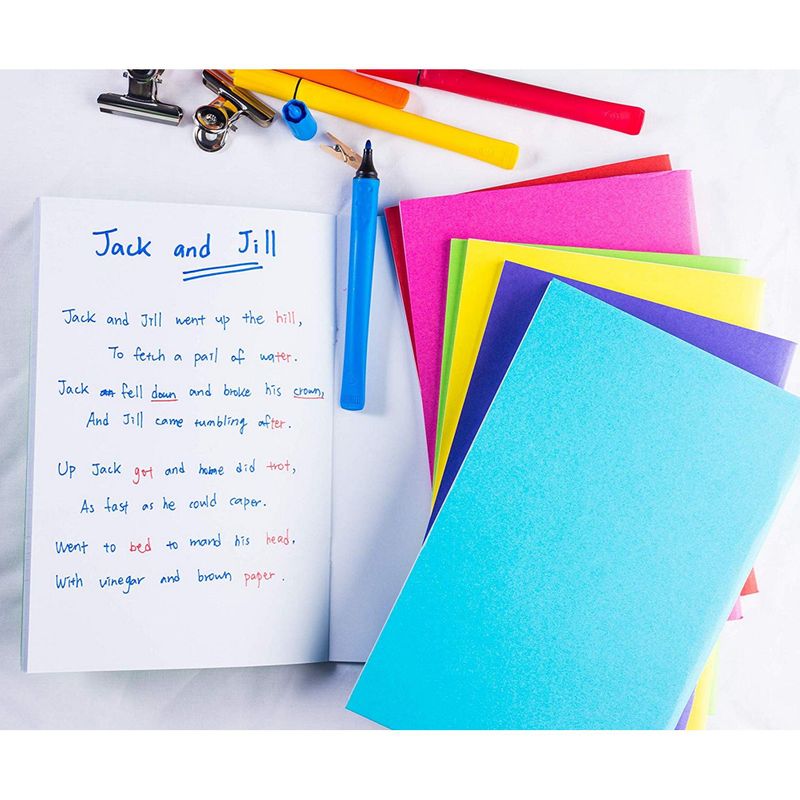 Jack and Jill
Jack and Jill went up the hill,
To fetch a pail of water.
Jack fell down and broke his crown,
And Jill came tumbling after.
Up Jack got and home did trot,
As fast as he could caper.
Went to bed to mand his head,
With vinegar and brown paper.